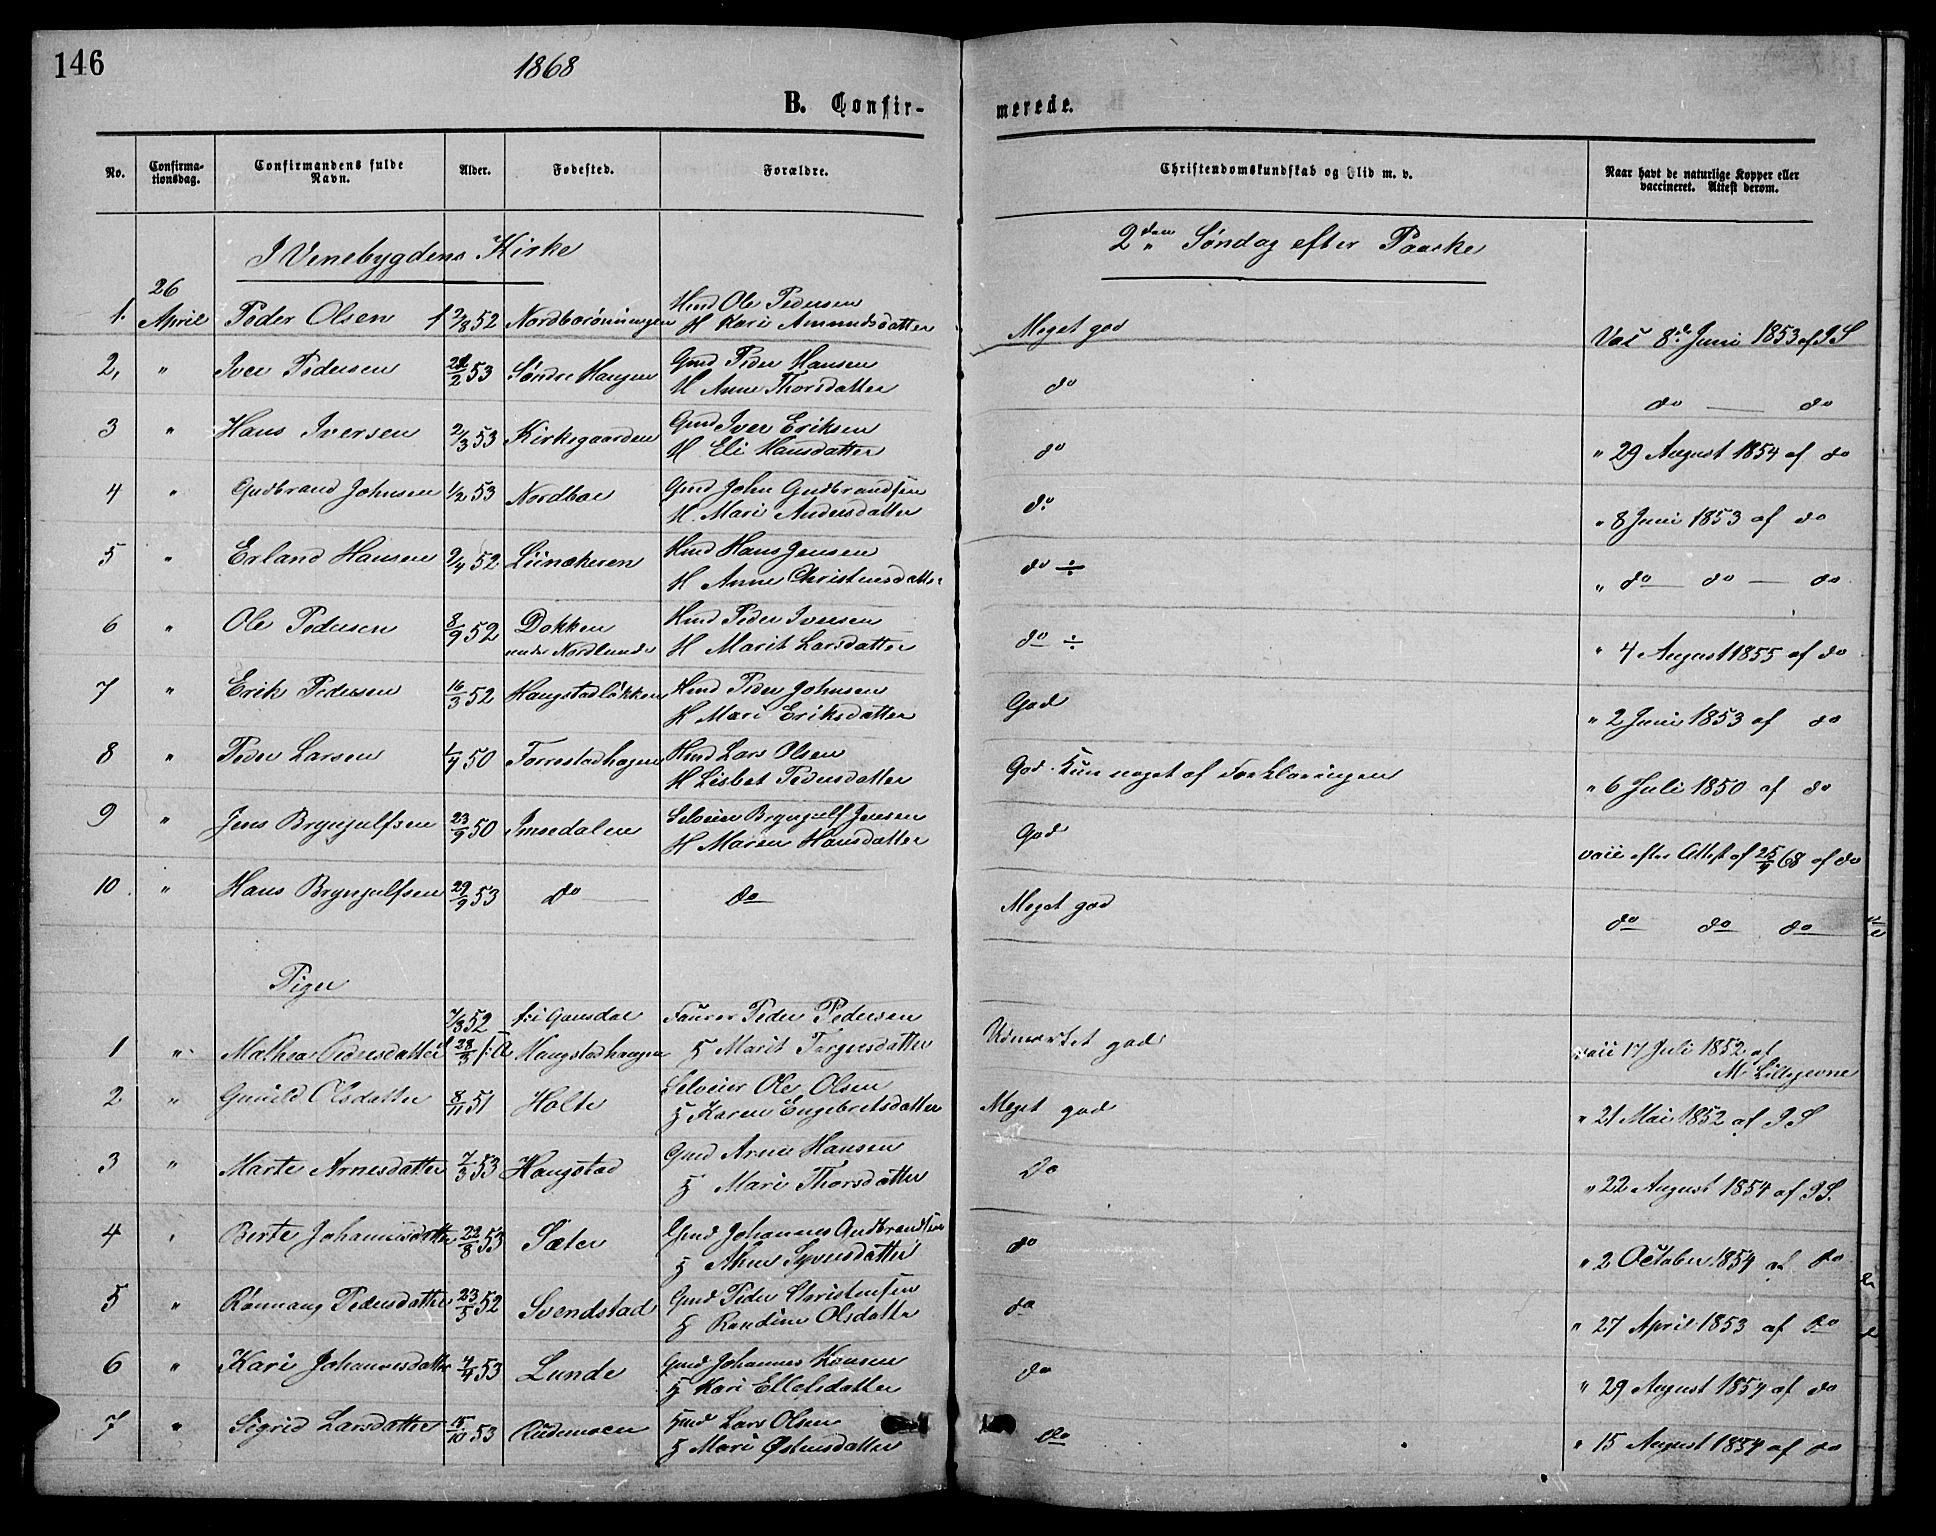 146
1868
B. Confir-
merede.
No.
Confirma-
tionsdag.
Confirmandens fulde
Navn.
Alder.
Fødested.
Forældre.
Christendomskundskab og Flid m. v.
Naar havt de naturlige Kopper eller
vaccineret. Attest derom.
I Venebygdens Kirke
2den Søndag efter Paaske
26
1. April Peder Olsen 2/8 52 Hmd Ole Pedersen
H Kari Amundsdatter
Meget god
Vac 8de Juni 1853 af I S
2, " Iver Pedersen 53 Søndre Haugen Gmd Peder Hansen
H Anne Thorsdatter
do
do — do
3 " Hans Iversen 2/3 53 Kirkegaarden Gmd Iver Eriksen
H Eli Hansdatter
do
" 29 August 1854 af do
4 " Gudbrand Johnsen 1/2 53 Nordboe Gmd John Gudbrandsen
H. Mari Andersdatter
do
" 8 Juni 1853 af do
5 " Erland Hansen 2/4 52 Hmd Hans Jensen
H Anne Christensdatter
do ÷
" do — do — do
6 " Ole Pedersen 8/9 52 Dokken Hmd Peder Iversen
under Nordlunde H Marit Larsdatter
do ÷
" 4 August 1855 af do
7 " Erik Pedersen 16/3 52 Haugstadløkken Hmd Peder Johnsen
H Mari Eriksdatter
God
" 2 Juni 1853 af do
8 " Peder Larsen 1/4 50 Forrestadhagen Hmd Lars Olsen
H Lisbet Pedersdatter
God. Kun noget af Forklaringen
" 6 Juli 1850 af do
9 " Jens Bryngulfsen 23/9 50 Imsedalen Selveier Bryngulf Jensen
H Maren Hansdatter
God
vacc efter Attest af 25/4 68 af do
10. " Hans Bryngulfsen 29/9 53 do do
Meget god
do do do
Piger
7/3 52 Faurer Peder Pedersen
1 " Mathea Pedersdatter 28/3 Haugstadhaugen H Marit Torgersdatter
Udmærket god
vacc 17 Juli 1852 af
M Lillejevne
2 " Gunild Olsdatter 8/11 51 Holte Selveier Ole Olsen
H Karen Engebretsdatter
Meget god
" 21 Mai 1852 af I S
3 " Marte Arnesdatter 7/3 53 Haugstad Gmd Arne Hansen
H Mari Thorsdatter
Do
" 22 August 1854 af I S.
4 " Berte Johannesdatter 22/8 53 Sæter Gmd Johannes Gudbrandsen
H Syversdatter
do
" 2 October 1854 af do
5 " Rønnaug Pedersdatter 23/5 52 Svendstad Gmd Peder Christensen
H Randine Olsdatter
do
" 27 April 1853 af do
6 " Kari Johannesdatter 4/4 53 Lunde Gmd Johannes Hansen
H Kari Ellefsdatter
do
" 29 August 1854 af do
7 " Sigrid Larsdatter 15/10 53 Rudemoen Hmd Lars Olsen
H Mari Østensdatter
do
" 15 August 1854 af do